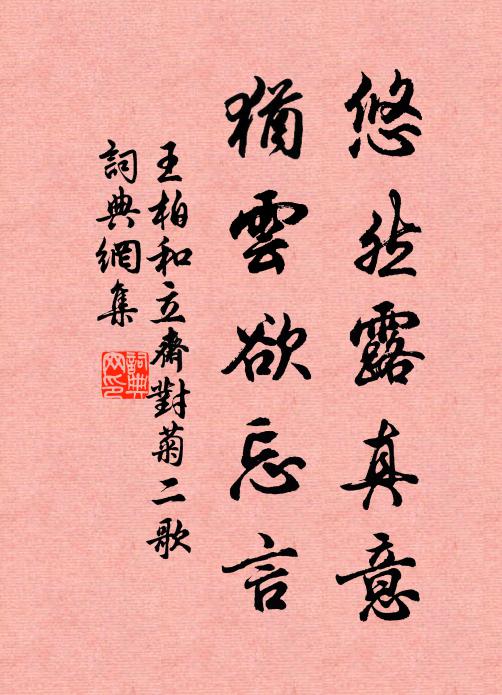 悠然露真意
猶雲欲忘言
王柏和立齋對菊二歌
詞典網集
詞典網印